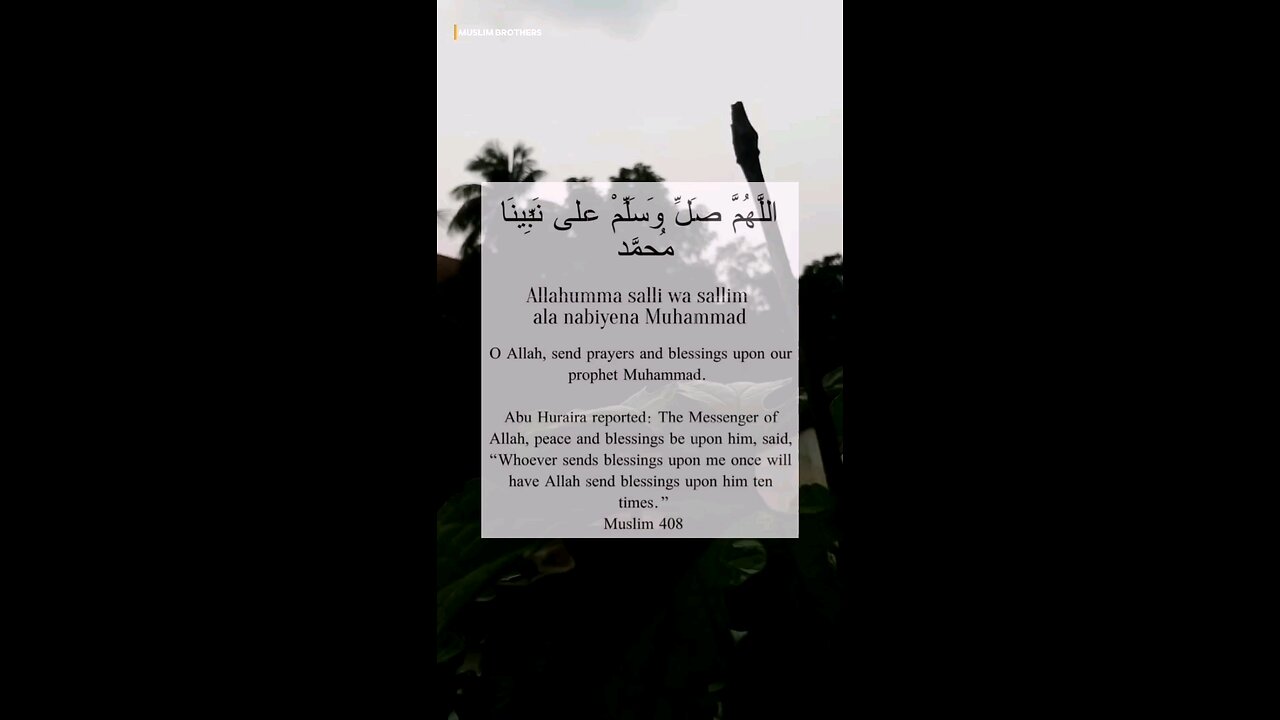 MUSLIM BROTHERS
اللَّهُمَّ صَلِّ وَسَلِّمْ على نَبِيِّنَا
مُحمَّد
Allahumma salli wa sallim
ala nabiyena Muhammad
O Allah, send prayers and blessings upon our
prophet Muhammad.
Abu Huraira reported: The Messenger of
Allah, peace and blessings be upon him, said,
“Whoever sends blessings upon me once will
have Allah send blessings upon him ten
times.”
Muslim 408